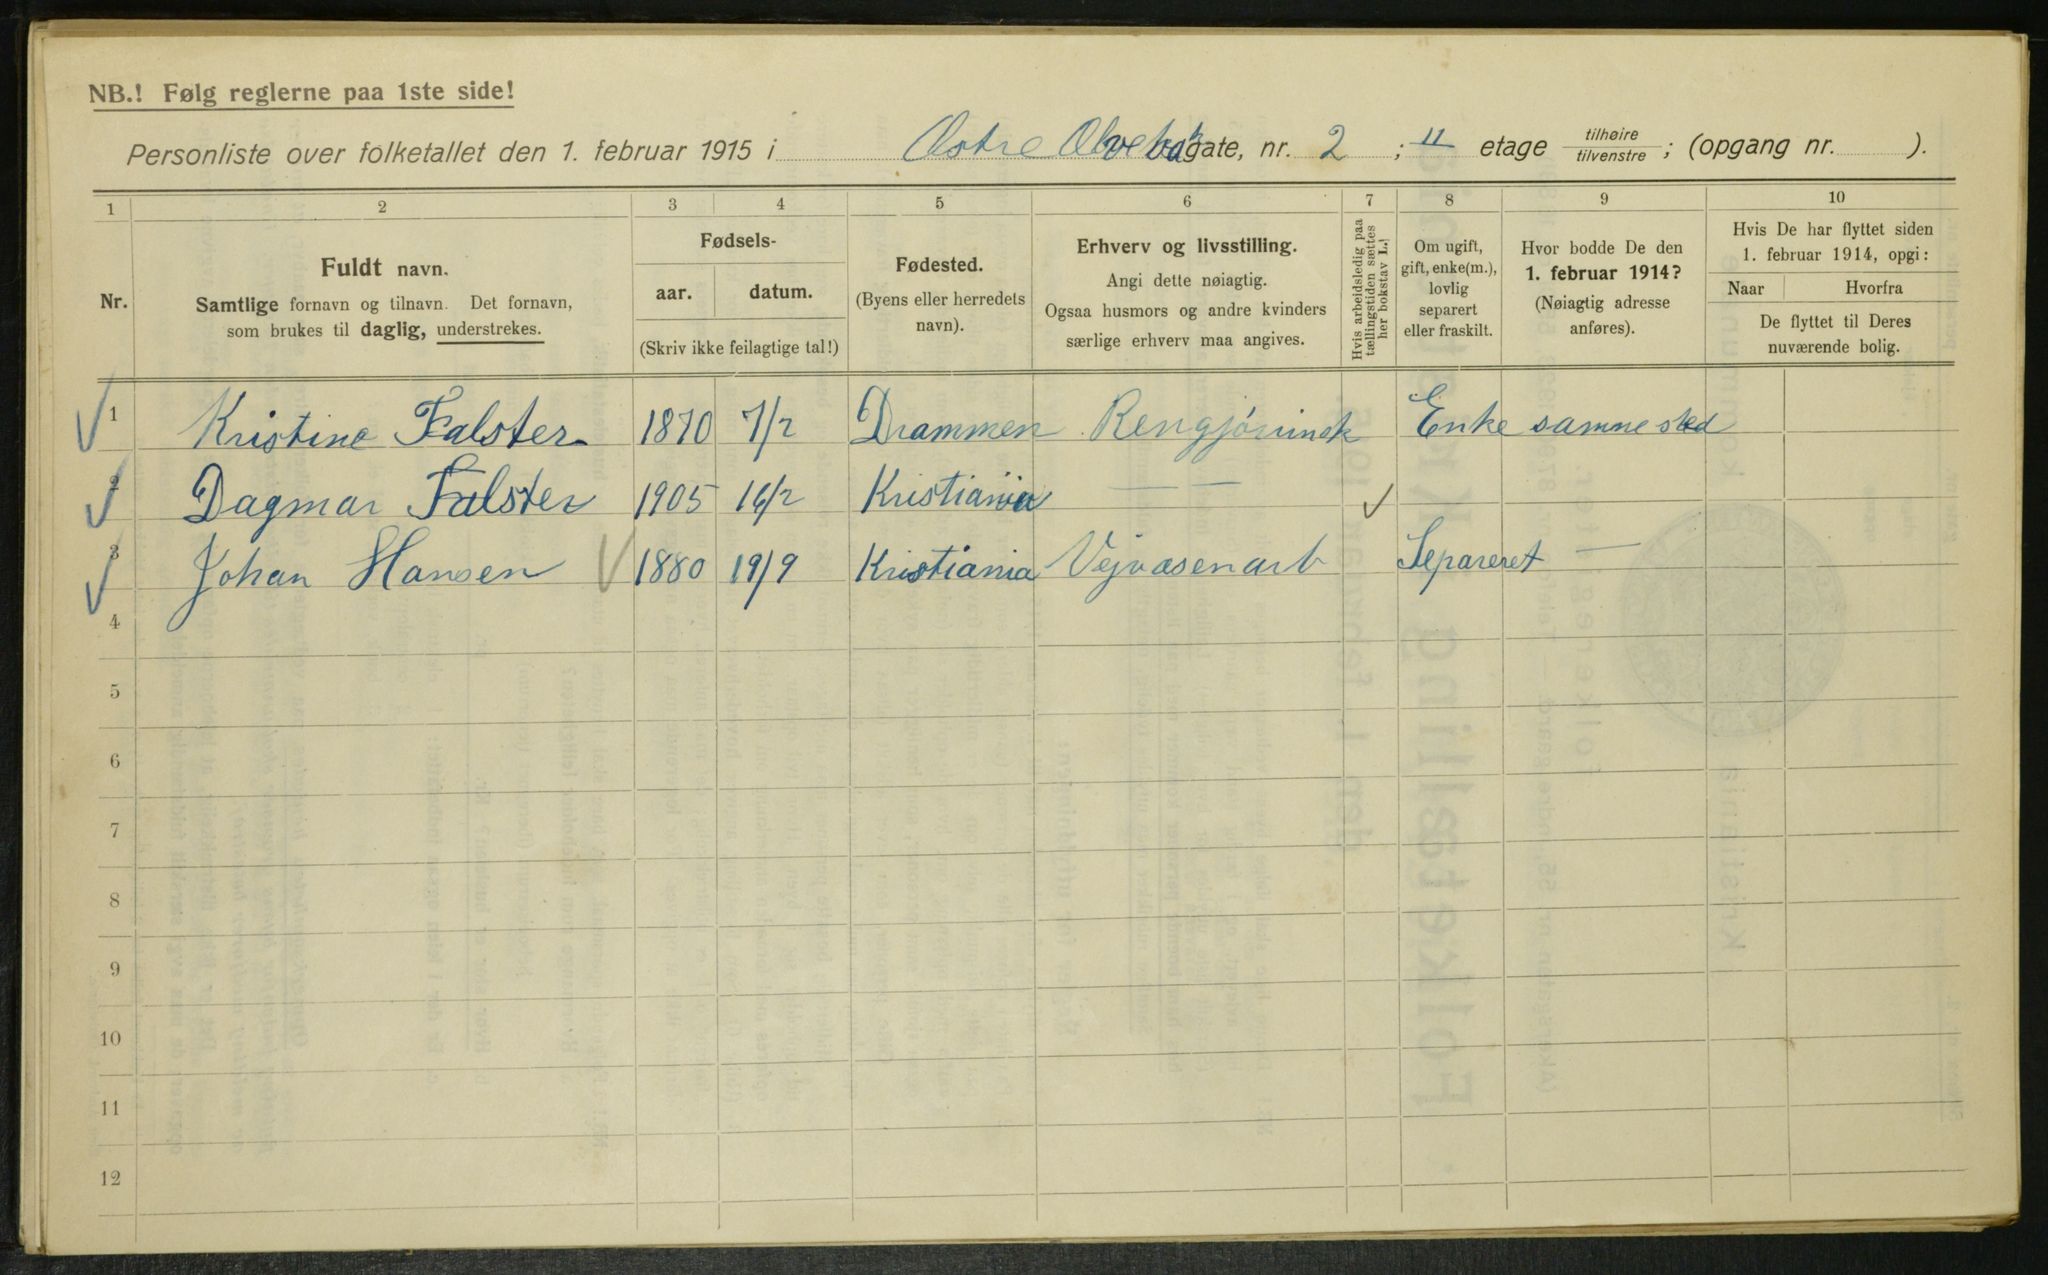 NB.! Følg reglerne paa 1ste side!
Personliste over folketallet den 1. februar 1915 i Østre Elvebak gate, nr. 2 ; II etage tilhøire/tilvenstre ; (opgang nr. ).
1 2 3 4 5 6 7 8 9 10
Nr.
Fuldt navn.
Samtlige fornavn og tilnavn. Det fornavn,
som brukes til daglig, understrekes.
Fødsels-
aar. datum.
(Skriv ikke feilagtige tal!)
Fødested.
(Byens eller herredets
navn).
Erhverv og livsstilling.
Angi dette nøiagtig.
Ogsaa husmors og andre kvinders
særlige erhverv maa angives.
Hvis arbeidsledig paa
tællingstiden sættes
her bokstav L.!
Om ugift,
gift, enke(m.),
lovlig
separert
eller fraskilt.
Hvor bodde De den
1. februar 1914?
(Nøiagtig adresse
anføres).
Hvis De har flyttet siden
1. februar 1914, opgi:
Naar Hvorfra
De flyttet til Deres
nuværende bolig.
1 Kristine Falster 1870 7/2 Drammen Rengjørinsk Enke samme sted
2 Dagmar Falster 1905 16/2 Kristiania — —
3 Johan Hansen 1880 19/9 Kristiania Vejvæsenarb Separeret —
4
5
6
7
8
9
10
11
12